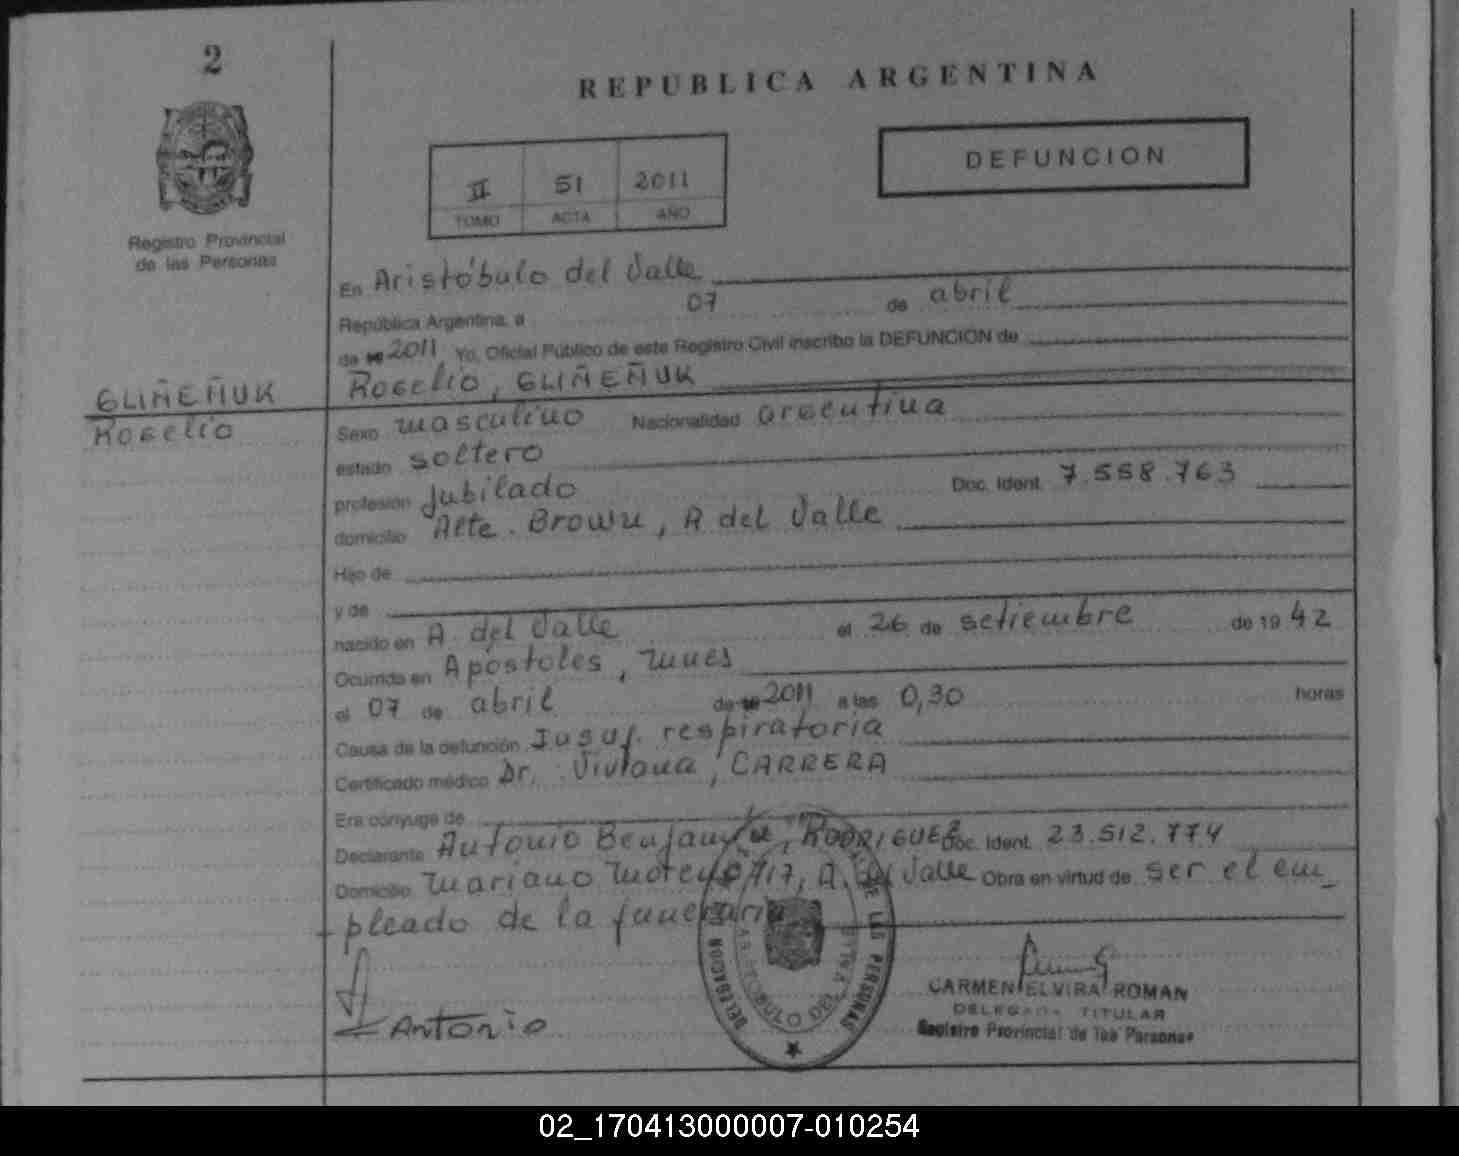 2
REPUBLICA ARGENTINA
DEFUNCION
II 51 2011
TOMO ACTA AÑO
Registro Provincial
de las Personas
En Aristóbulo del Valle
República Argentina, a 07 de abril
de 2011 Yo, Oficial Público de este Registro Civil inscribo la DEFUNCION de
GLIÑEÑUK
Rogelio, GLIÑEÑUK
Rogelio
Sexo masculino Nacionalidad argentina
estado soltero
profesión jubilado Doc. Ident. 7.558.763
domicilio Alte. Brown, A del Valle
Hijo de
y de
nacido en A. del Valle el 26 de setiembre de 19 42
Ocurrida en Apostoles, Mnes
el 07 de abril de 2011 a las 0,30 horas
Causa de la defunción Insuf. respiratoria
Certificado médico Dr. Viviana, CARRERA
Era cónyuge de
Declarante Antonio Benjamín, RODRIGUEZ Doc. Ident. 23.512.774
Domicilio Mariano Moreno 717, A. del Valle Obra en virtud de ser el em_
pleado de la funeraria
Antonio
DELEGACION DE LAS PERSONAS
ARISTOBULO DEL
CARMEN ELVIRA ROMAN
DELEGADA TITULAR
Registro Provincial de las Personas
02_170413000007-010254